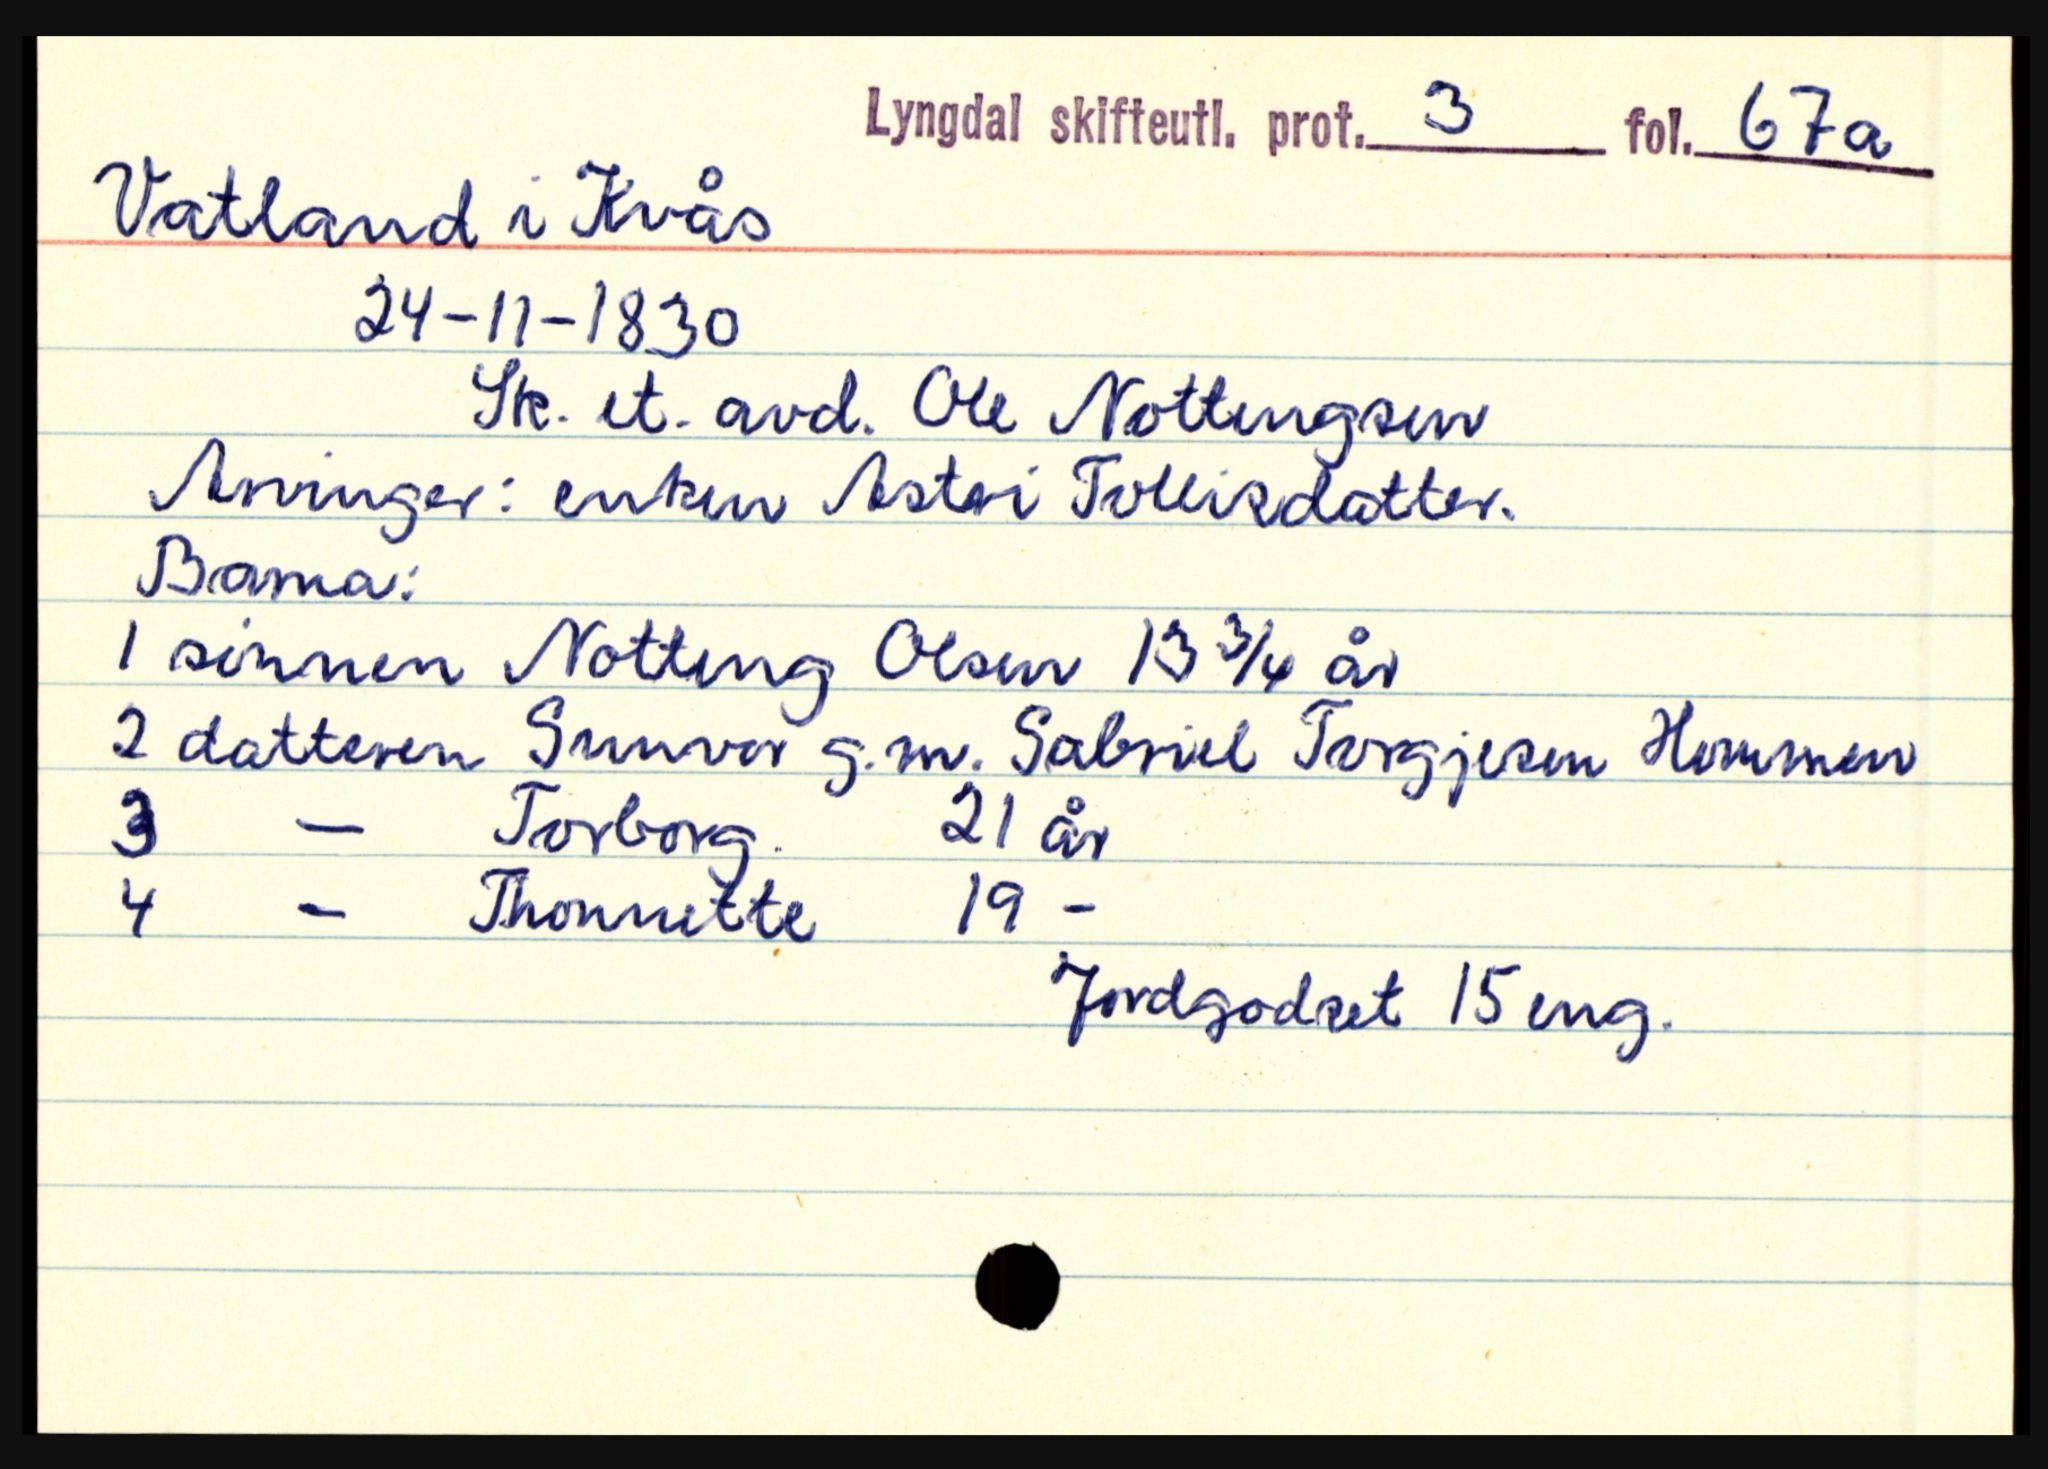 Lyngdal skifteutl. prot. 3 fol. 67a
Vatland i Kvås
24-11-1830
Sk. et. avd. Ole Nottengsen
Arvinger: enken Astri Tollisdatter.
Barna:
1 sønnen Notteng Olsen 13 3/4 år
2 datteren Gunvor g.m. Gabriel Torgjesen Hommen
3 — Torborg. 21 år
4 - Thonnette 19 -
Jordgodset 15 eng.